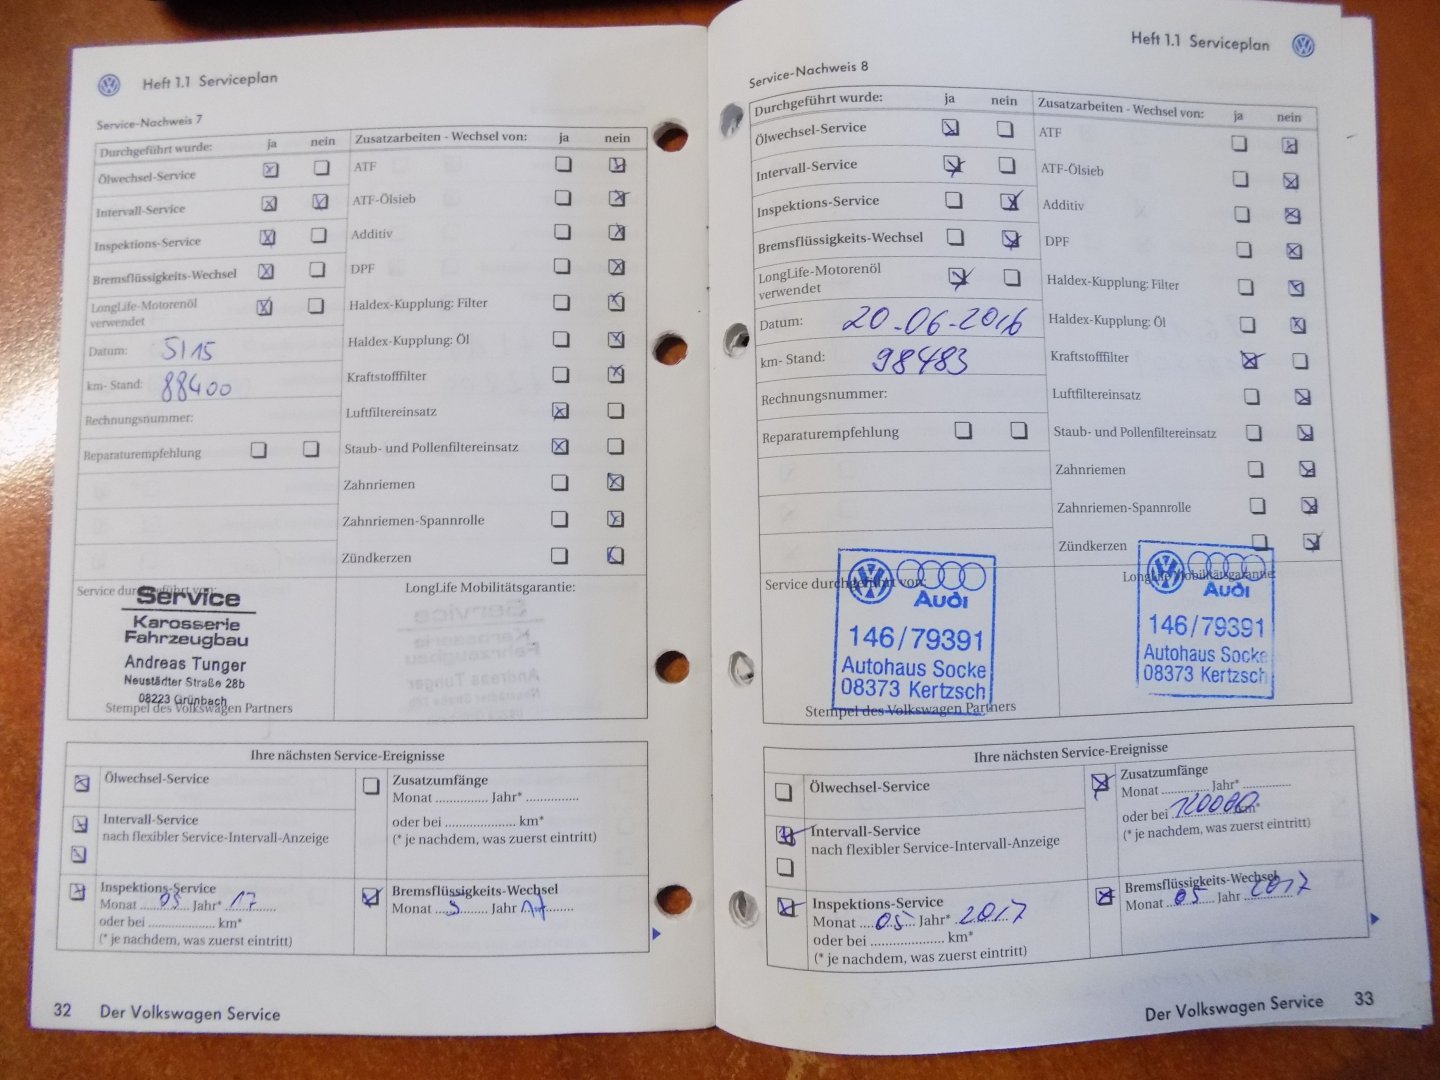 Heft 1.1 Serviceplan
Service-Nachweis 7
Durchgeführt wurde: ja nein
Ölwechsel-Service
Intervall-Service
Inspektions-Service
Bremsflüssigkeits-Wechsel
LongLife-Motorenöl
verwendet
Datum: 5/15
km- Stand: 88400
Rechnungsnummer:
Reparaturempfehlung
Zusatzarbeiten - Wechsel von: ja nein
ATF
ATF-Ölsieb
Additiv
DPF
Haldex-Kupplung: Filter
Haldex-Kupplung: Öl
Kraftstofffilter
Luftfiltereinsatz
Staub- und Pollenfiltereinsatz
Zahnriemen
Zahnriemen-Spannrolle
Zündkerzen
Service durchgeführt von:
Service
Karosserie
Fahrzeugbau
Andreas Tunger
Neustädter Straße 28b
08223 Grünbach
Stempel des Volkswagen Partners
LongLife Mobilitätsgarantie:
Ihre nächsten Service-Ereignisse
Ölwechsel-Service
Intervall-Service
nach flexibler Service-Intervall-Anzeige
Inspektions-Service
Monat 05 Jahr* 17
oder bei .................... km*
(* je nachdem, was zuerst eintritt)
Zusatzumfänge
Monat ............... Jahr* ...............
oder bei .................... km*
(* je nachdem, was zuerst eintritt)
Bremsflüssigkeits-Wechsel
Monat 5 Jahr 17
32 Der Volkswagen Service
Heft 1.1 Serviceplan
Service-Nachweis 8
Durchgeführt wurde: ja nein
Ölwechsel-Service
Intervall-Service
Inspektions-Service
Bremsflüssigkeits-Wechsel
LongLife-Motorenöl
verwendet
Datum: 20-06-2016
km- Stand: 98483
Rechnungsnummer:
Reparaturempfehlung
Zusatzarbeiten - Wechsel von: ja nein
ATF
ATF-Ölsieb
Additiv
DPF
Haldex-Kupplung: Filter
Haldex-Kupplung: Öl
Kraftstofffilter
Luftfiltereinsatz
Staub- und Pollenfiltereinsatz
Zahnriemen
Zahnriemen-Spannrolle
Zündkerzen
Service durchgeführt von:
Audi
146/79391
Autohaus Socke
08373 Kertzsch
Stempel des Volkswagen Partners
LongLife Mobilitätsgarantie:
Audi
146/79391
Autohaus Socke
08373 Kertzsch
Ihre nächsten Service-Ereignisse
Ölwechsel-Service
Intervall-Service
nach flexibler Service-Intervall-Anzeige
Inspektions-Service
Monat 05 Jahr* 2017
oder bei .................... km*
(* je nachdem, was zuerst eintritt)
Zusatzumfänge
Monat ............... Jahr* ...............
oder bei 120000 km*
(* je nachdem, was zuerst eintritt)
Bremsflüssigkeits-Wechsel
Monat 05 Jahr 2017
Der Volkswagen Service 33